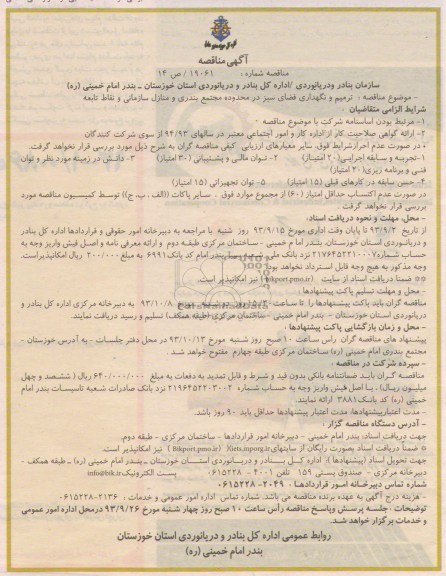 آگهی مناقصه
مناقصه شماره : ۱۹۰۶۱ / ص ۱۴
سازمان بنادر ودریانوردی /اداره کل بنادر و دریانوردی استان خوزستان ـ بندر امام خمینی (ره)
- موضوع مناقصه : ترمیم و نگهداری فضای سبز در محدوده مجتمع بندری و منازل سازمانی و نقاط تابعه
شرایط الزامی متقاضیان :
۱- مرتبط بودن اساسنامه شرکت با موضوع مناقصه
۲- ارائه گواهی صلاحیت کار از اداره کار و امور اجتماعی معتبر در سالهای ۹۴/۹۳ از سوی شرکت کنندگان
• در صورت عدم احراز شرایط فوق، سایر معیارهای ارزیابی کیفی مناقصه گران به شرح ذیل مورد بررسی قرار نخواهد گرفت.
۱-تجربه و سابقه اجرایی(۲۰ امتیاز) ۲- توان مالی و پشتیبانی (۳۰ امتیاز) ۳- دانش در زمینه مورد نظر و توان
فنی و برنامه ریزی(۲۰ امتیاز)
۴- حسن سابقه در کارهای قبلی (۱۵ امتیاز) ۵- توان تجهیزاتی (۱۵ امتیاز)
در صورت عدم اکتساب حداقل امتیاز (۶۰) از مجموع موارد فوق ، سایر پاکات ((الف ، ب، ج)) توسط کمیسیون مناقصه مورد
بررسی قرار نخواهد گرفت .
- محل، مهلت و نحوه دریافت اسناد:
از تاریخ ۹۳/۹/۲ تا پایان وقت اداری مورخ ۹۳/۹/۱۵ روز شنبه با مراجعه به دبیرخانه امور حقوقی و قراردادها اداره کل بنادر
و دریانوردی استان خوزستان، بندر امام خمینی - ساختمان مرکزی طبقه دوم و ارائه معرفی نامه و اصل فیش واریز وجه به
حساب شماره ۲۱۷۶۴۵۲۲۱۰۰۰۷ نزد بانک ملی شعبه بندر امام کد بانک ۶۹۹۱ به مبلغ ۲۰۰/۰۰۰ ریال امکانپذیراست.
وجه مذکور به هیچ وجه قابل استرداد نخواهد بود.
** ضمناً دریافت اسناد از سایت (bikport.pmo.ir) نیز امکانپذیر است.
- محل و مهلت تسلیم پاکت پیشنهادها :
مناقصه گران باید پاکت پیشنهادها را تا ساعت شنبه ۹۳/۱۰/۸ به دبیرخانه مرکزی اداره کل بنادر و
دریانوردی استان خوزستان - بندر امام خمینی - ساختمان مرکزی (طبقه همکف) تسلیم و رسید دریافت نمایند.
- محل و زمان بازگشایی پاکت پیشنهادها :
پیشنهاد های مناقصه گران راس ساعت ۱۰ صبح روز شنبه مورخ ۹۳/۱۰/۱۳ در محل دفتر جلسات - به آدرس در
مجتمع بندری امام خمینی (ره) ساختمان مرکزی طبقه چهارم مفتوح خواهد شد .
- سپرده شرکت در مناقصه :
مناقصه گران باید ضمانتنامه بانکی بدون قید و شرط و قابل تمدید به دفعات به مبلغ ۶۴۰/۰۰۰/۰۰۰ ریال ( ششصد و چهل
میلیون ریال) ، یا اصل فیش واریز وجه به حساب شماره ۲۱۹۶۴۵۲۲۰۳۰۰۲ نزد بانک صادرات شعبه تاسیسات بندر امام
خمینی (ره) کد بانک ۳۸۸۱ ارائه نمایند.
- مدت اعتبارپیشنهادها: مدت اعتبار پیشنهادها حداقل باید ۹۰ روز باشد.
- آدرس دستگاه مناقصه گزار :
جهت دریافت اسناد، بندر امام خمینی - دبیرخانه امور قراردادها - ساختمان مرکزی - طبقه دوم.
* ضمناً دریافت اسناد بصورت رایگان از سایتهای iets.mporg.ir ( bikport.pmo.ir ) نیز امکانپذیر است.
جهت تحویل اسناد (پیشنهادها )؛ اداره کل بنادر و دریانوردی استان خوزستان ـ بندر امام خمینی (ره) ـ طبقه همکف -
دبیرخانه مرکزی - صندوق پستی ۱۵۹ تلفن ۴۰۰۱ - ۰۶۱۵۲۲۸ پست الکترونیک info@bik.ir
شماره تماس دبیرخانه امور قراردادها : ۲۰۴۹-۰۶۱۵۲۲۸
- هزینه درج آگهی به عهده برنده مناقصه می باشد. شماره تماس اداره امور عمومی و خدمات : ۲۱۳۶-۰۶۱۵۲۲۸
توضیحات :جلسه پرسش وپاسخ مناقصه رأس ساعت ۱۰ صبح روز چهار شنبه مورخ ۹۳/۹/۲۶ درمحل اداره امور عمومی
و خدمات برگزار خواهد شد.
روابط عمومی اداره کل بنادر و دریانوردی استان خوزستان
بندر امام خمینی (ره)